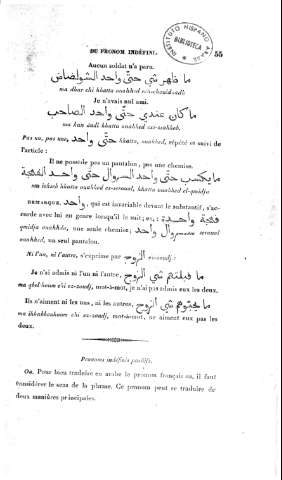 DU PRONOM INDÉFINI. 55
INSTITUTO HISPANO ARABE
BIBLIOTECA
Aucun soldat n'a paru.
ما ظهر شي حتّى واحد
ma dhar chi hhatta ouahhed
Je n'avais nul ami.
ما كان عندي حتّى واحد الصاحب
ma kan ândi hhatta ouahhed es-sahheb.
Pas un, pas une, حتّى واحد, hhatta, ouahhed, répété et suivi de
l'article :
Il ne possède pas un pantalon, pas une chemise.
ما يكسب حتّى واحد السروال حتّى واحد القمجة
ma ikseb hhatta ouahhed es-seroual, hhatta ouahhed el-qmidja
REMARQUE. واحد, qui est invariable devant le substantif, s'ac-
corde avec lui en genre lorsqu'il le suit; ex.: قمجة واحدة:
qmidja ouahhda, une seule chemise; سروال واحد seroual
ouahhed, un seul pantalon.
Ni l'un, ni l'autre, s'exprime par الزوج ez-zoudj:
Je n'ai admis ni l'un ni l'autre, ما قبلتهم شي الزوج,
ma qbelthoum chi ez-zoudj, mot-à-mot, je n'ai pas admis eux les deux.
Ils n'aiment ni les uns, ni les autres, ما يحبّوهم شي الزوج,
ma ihhabbouhoum chi ez-zoudj, mot-à-mot, ne aiment eux pas les
deux.
Pronoms indéfinis positifs.
On. Pour bien traduire en arabe le pronom français on, il faut
considérer le sens de la phrase. Ce pronom peut se traduire de
deux manières principales.